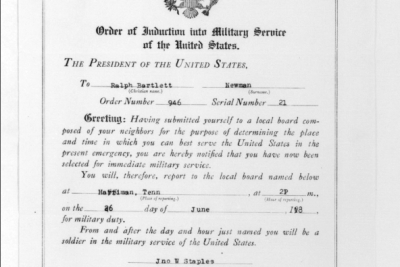 Order of Induction into Military Service
of the United States.
THE PRESIDENT OF THE UNITED STATES,
To Ralph Bartlett Newman
(Christian name.) (Surname.)
Order Number 946 Serial Number 21
Greeting: Having submitted yourself to a local board com-
posed of your neighbors for the purpose of determining the place
and time in which you can best serve the United States in the
present emergency, you are hereby notified that you have now been
selected for immediate military service.
You will, therefore, report to the local board named below
at Harriman, Tenn , at 2P m.,
(Place of reporting.) (Hour of reporting.)
on the 26 day of June , 1918
for military duty.
From and after the day and hour just named you will be a
soldier in the military service of the United States.
Jno W Staples